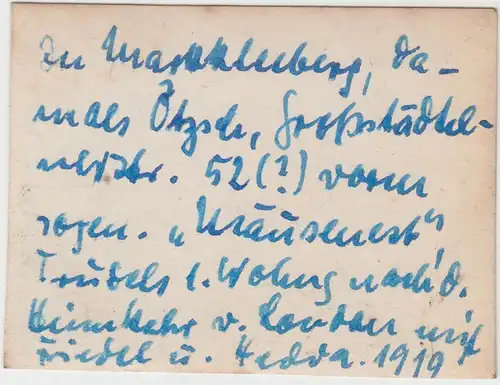 In Markkleeberg, da-
mals Ötzsch, Großstädtel-
nerstr. 52 (?) vorm
sogen. „Mäusenest",
Trudels 1. Wohng nach d.
Heimkehr v. London mit
Friedel u. Hedda. 1919